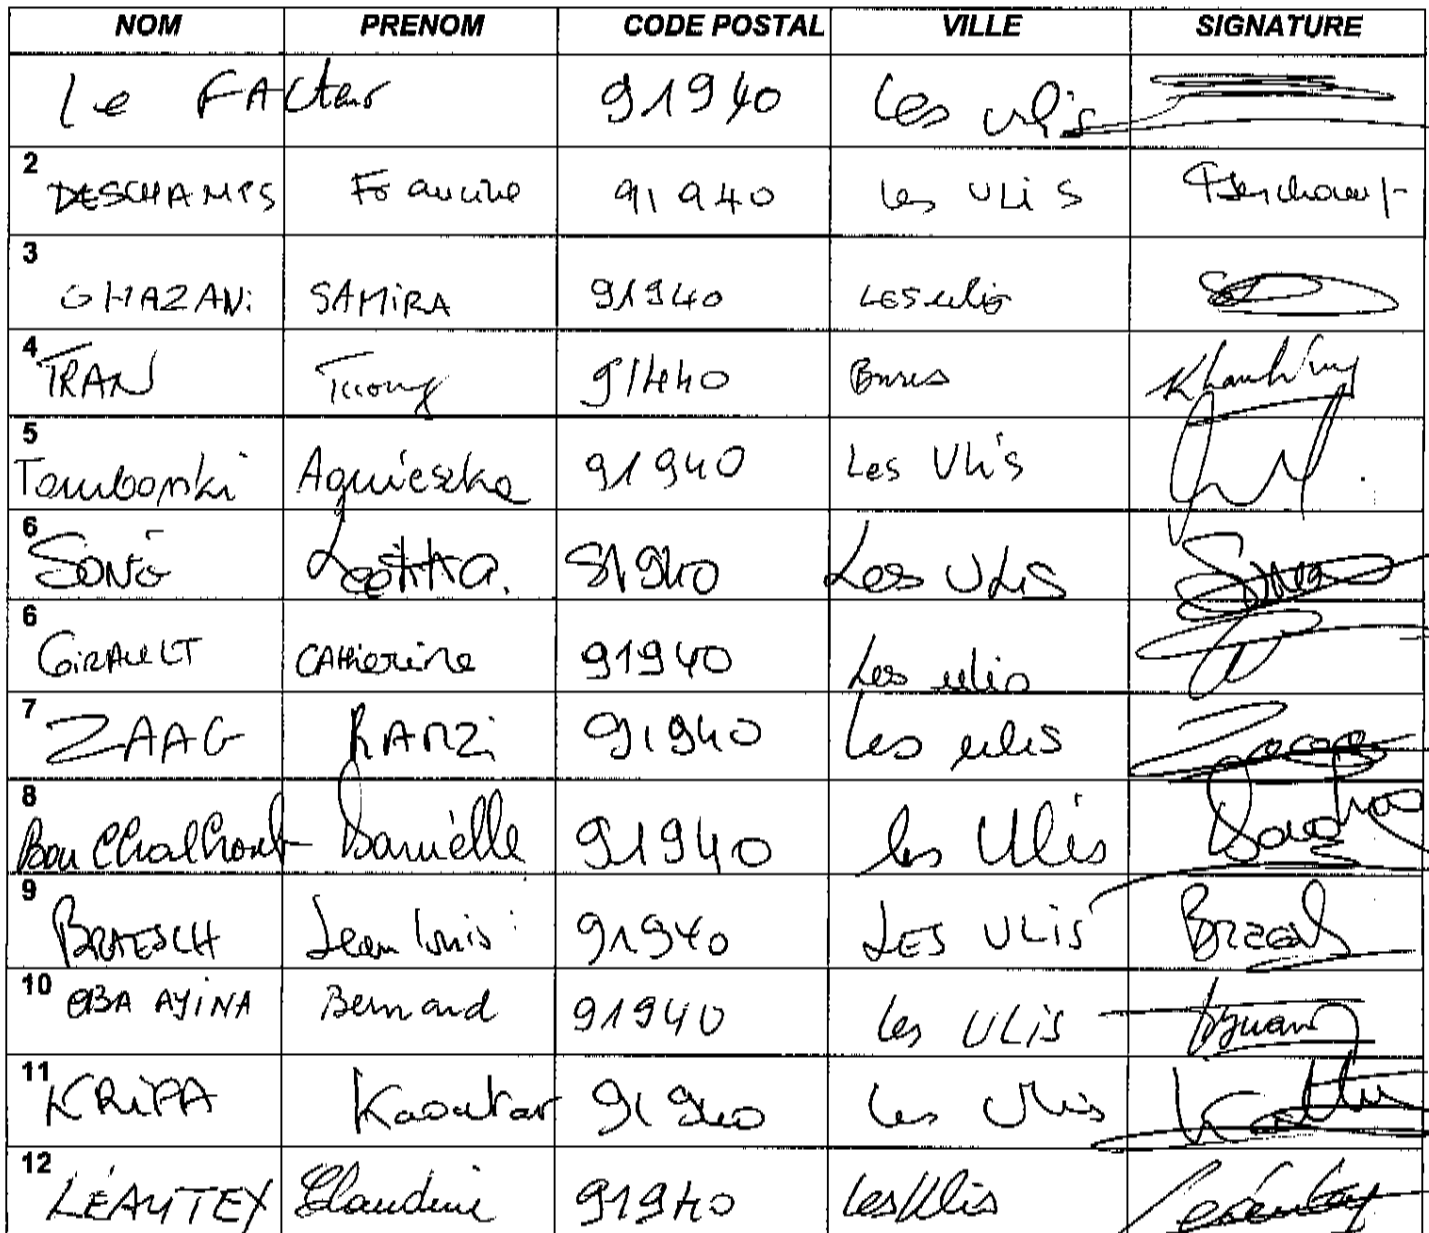 NOM PRENOM CODE POSTAL VILLE SIGNATURE
Le FActeur 91940 Les Ulis
2 DESCHAMPS Francine 91940 Les ULiS Deschamps
3 GHAZANi SAMiRA 91940 LES ulis
4 TRAN Truong 91440 Bures
5 Agnieszka 91940 Les Ulis
6 91940 Les ULiS
6 GiRAULT CAtherine 91940 Les ulis
7 ZAAG RAMZi 91940 Les ulis
8 Bou Chalhoub Danièlle 91940 les Ulis
9 BRAESCH Jean louis 91940 LES ULiS
10 OBA AYiNA Bernard 91940 les ULiS
11 KRiPA Kaoutar 91940 Les Ulis
12 LÉAUTEY Claudine 91940 Les Ulis